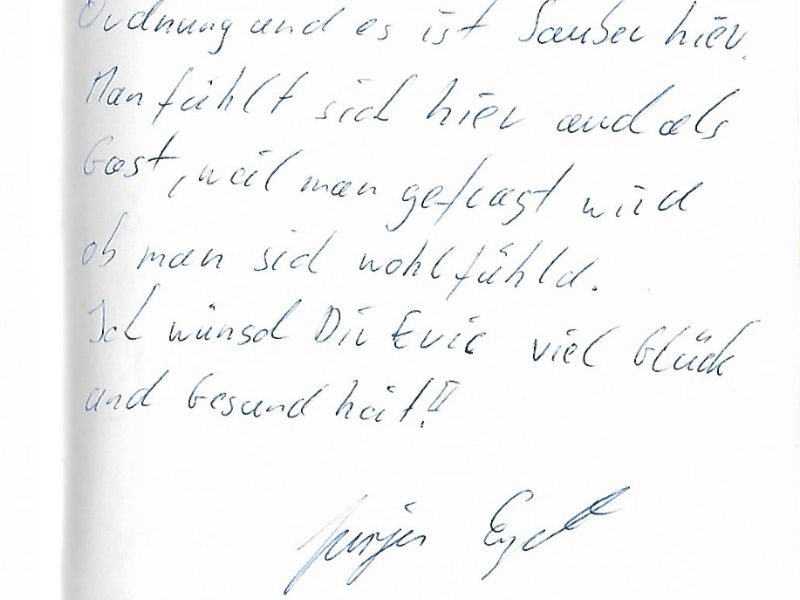 Ordnung und es ist Sauber hier.
Man fühlt sich hier auch als
Gast, weil man gefragt wird
ob man sich wohlfühld.
Ich wünsch Dir Evic viel Glück
und Gesundheit!!